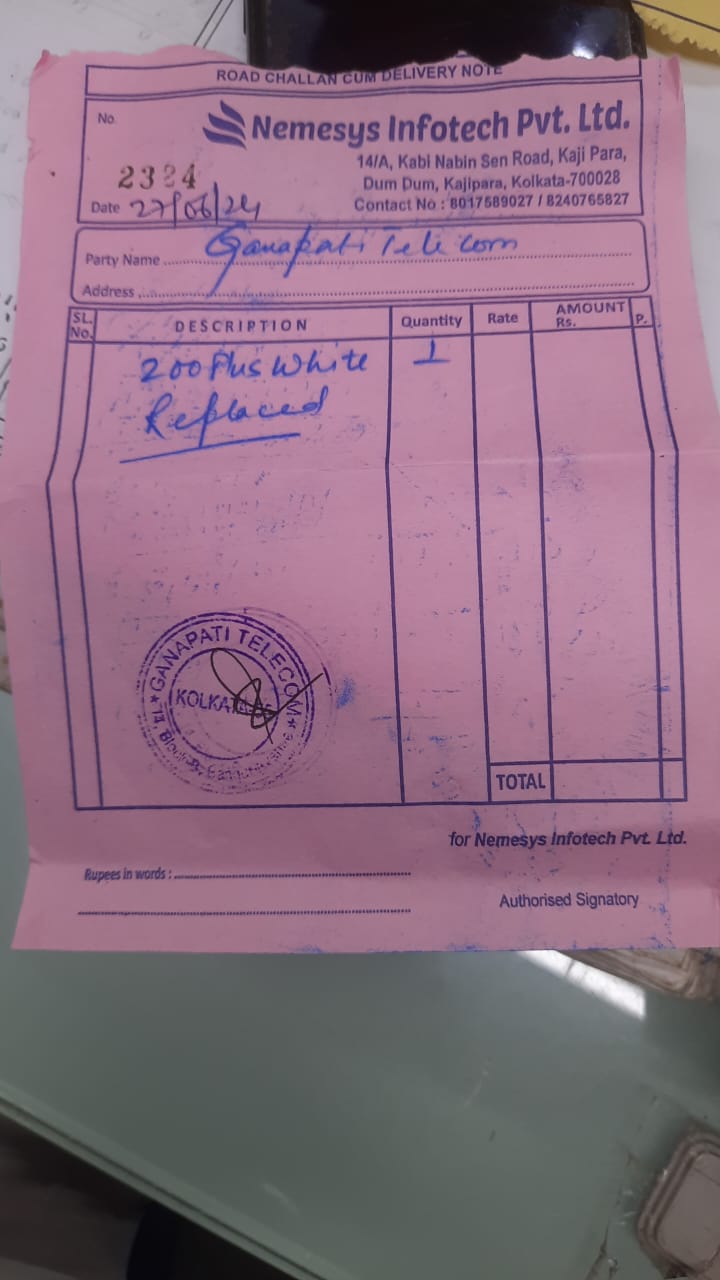 ROAD CHALLAN CUM DELIVERY NOTE
No.
Nemesys Infotech Pvt. Ltd.
14/A, Kabi Nabin Sen Road, Kaji Para,
Dum Dum, Kajipara, Kolkata-700028
Contact No : 8017589027 / 8240765827
2324
Date 27/06/24
Party Name Ganapati Telecom
Address
SL. No. DESCRIPTION Quantity Rate AMOUNT Rs. P.
200 Plus White 1
Replaced
GANAPATI TELECOM
KOLKATA
TOTAL
for Nemesys Infotech Pvt. Ltd.
Rupees in words :
Authorised Signatory